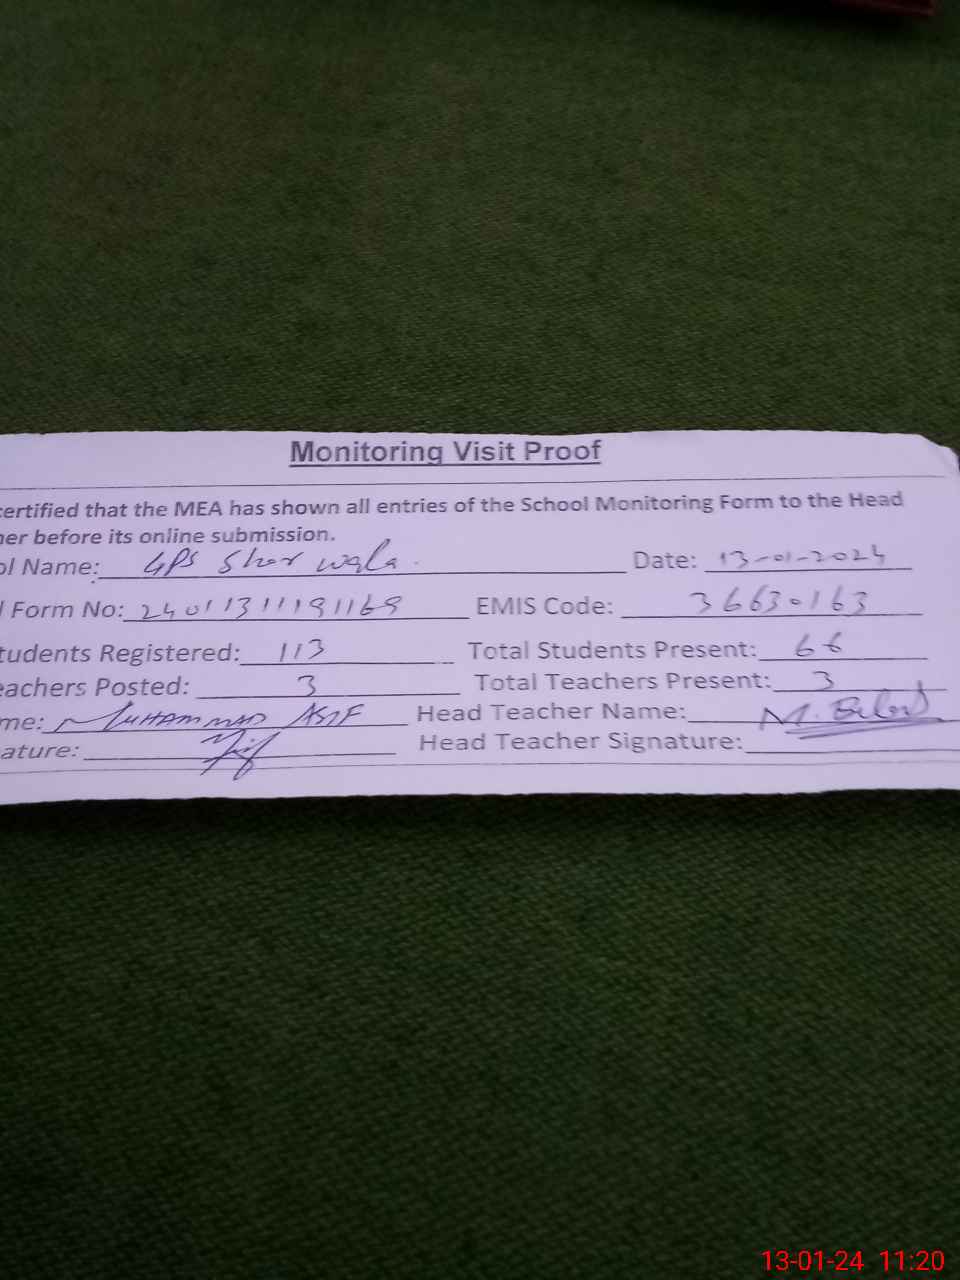 Monitoring Visit Proof
certified that the MEA has shown all entries of the School Monitoring Form to the Head
her before its online submission.
ol Name: GPS Shor wala Date: 13-01-2024
Form No: 24011311191169 EMIS Code: 36630163
tudents Registered: 113 Total Students Present: 66
eachers Posted: 3 Total Teachers Present: 3
me: MUHAMMAD ASIF Head Teacher Name: M. Bilal
ature: Head Teacher Signature:
13-01-24 11:20